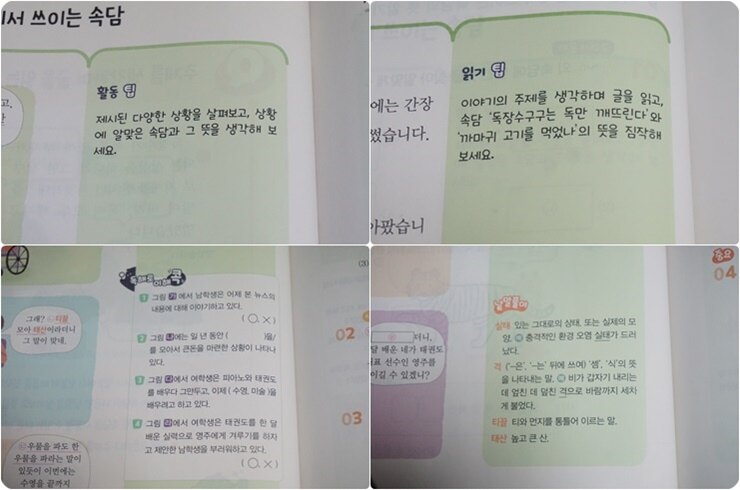 서 쓰이는 속담
활동 팁
제시된 다양한 상황을 살펴보고, 상황
에 알맞은 속담과 그 뜻을 생각해 보
세요.
고,
읽기 팁
이야기의 주제를 생각하며 글을 읽고,
속담 '독장수구구는 독만 깨뜨린다'와
'까마귀 고기를 먹었나'의 뜻을 짐작해
보세요.
에는 간장
썼습니다.
아팠습니
그래? ㉠티끌
모아 태산이라더니
그 말이 맞네.
㉡우물을 파도 한
우물을 파라는 말이
있듯이 이번에는
수영을 끝까지
콕
1 그림 가에서 남학생은 어제 본 뉴스의
내용에 대해 이야기하고 있다.
(○, ×)
2 그림 나에는 일 년 동안 ( )을/
를 모아서 큰돈을 마련한 상황이 나타나
있다.
3 그림 에서 여학생은 피아노와 태권도
를 배우다 그만두고, 이제 (수영, 미술)을
배우려고 하고 있다.
4 그림 에서 여학생은 태권도를 한 달
배운 실력으로 영주에게 겨루기를 하자
고 제안한 남학생을 부러워하고 있다.
(○, ×)
(3)
02
03
더니,
달 배운 네가 태권도
표 선수인 영주를
이길 수 있겠니?
낱말풀이
실태 있는 그대로의 상태. 또는 실제의 모
양. 예 충격적인 환경 오염 실태가 드러
났다.
격 ('-은', '-는' 뒤에 쓰여) '셈', '식'의 뜻
을 나타내는 말. 예 비가 갑자기 내리는
데 엎친 데 덮친 격으로 바람까지 세차
게 불었다.
티끌 티와 먼지를 통틀어 이르는 말.
태산 높고 큰 산.
중요
04